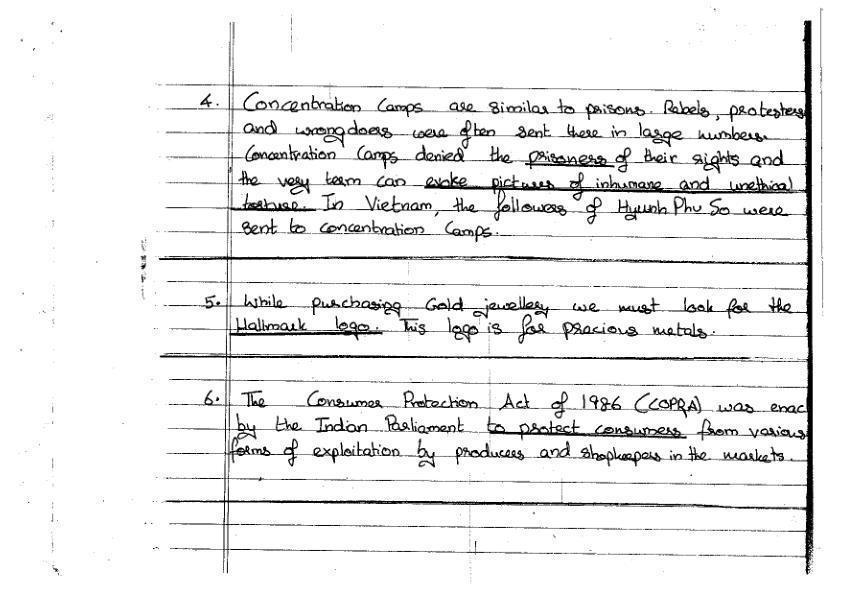 4. Concentration Camps are similar to prisons. Rebels, protesters
and wrongdoers were often sent there in large numbers.
Concentration Camps denied the prisoners of their rights and
the very term can evoke pictures of inhumane and unethical
torture. In Vietnam, the followers of Hyunh Phu So were
sent to concentration Camps.
5. While purchasing Gold jewellery we must look for the
Hallmark logo. This logo is for precious metals.
6. The Consumer Protection Act of 1986 (COPRA) was enac
by the Indian Parliament to protect consumers from various
forms of exploitation by producers and shopkeepers in the markets.